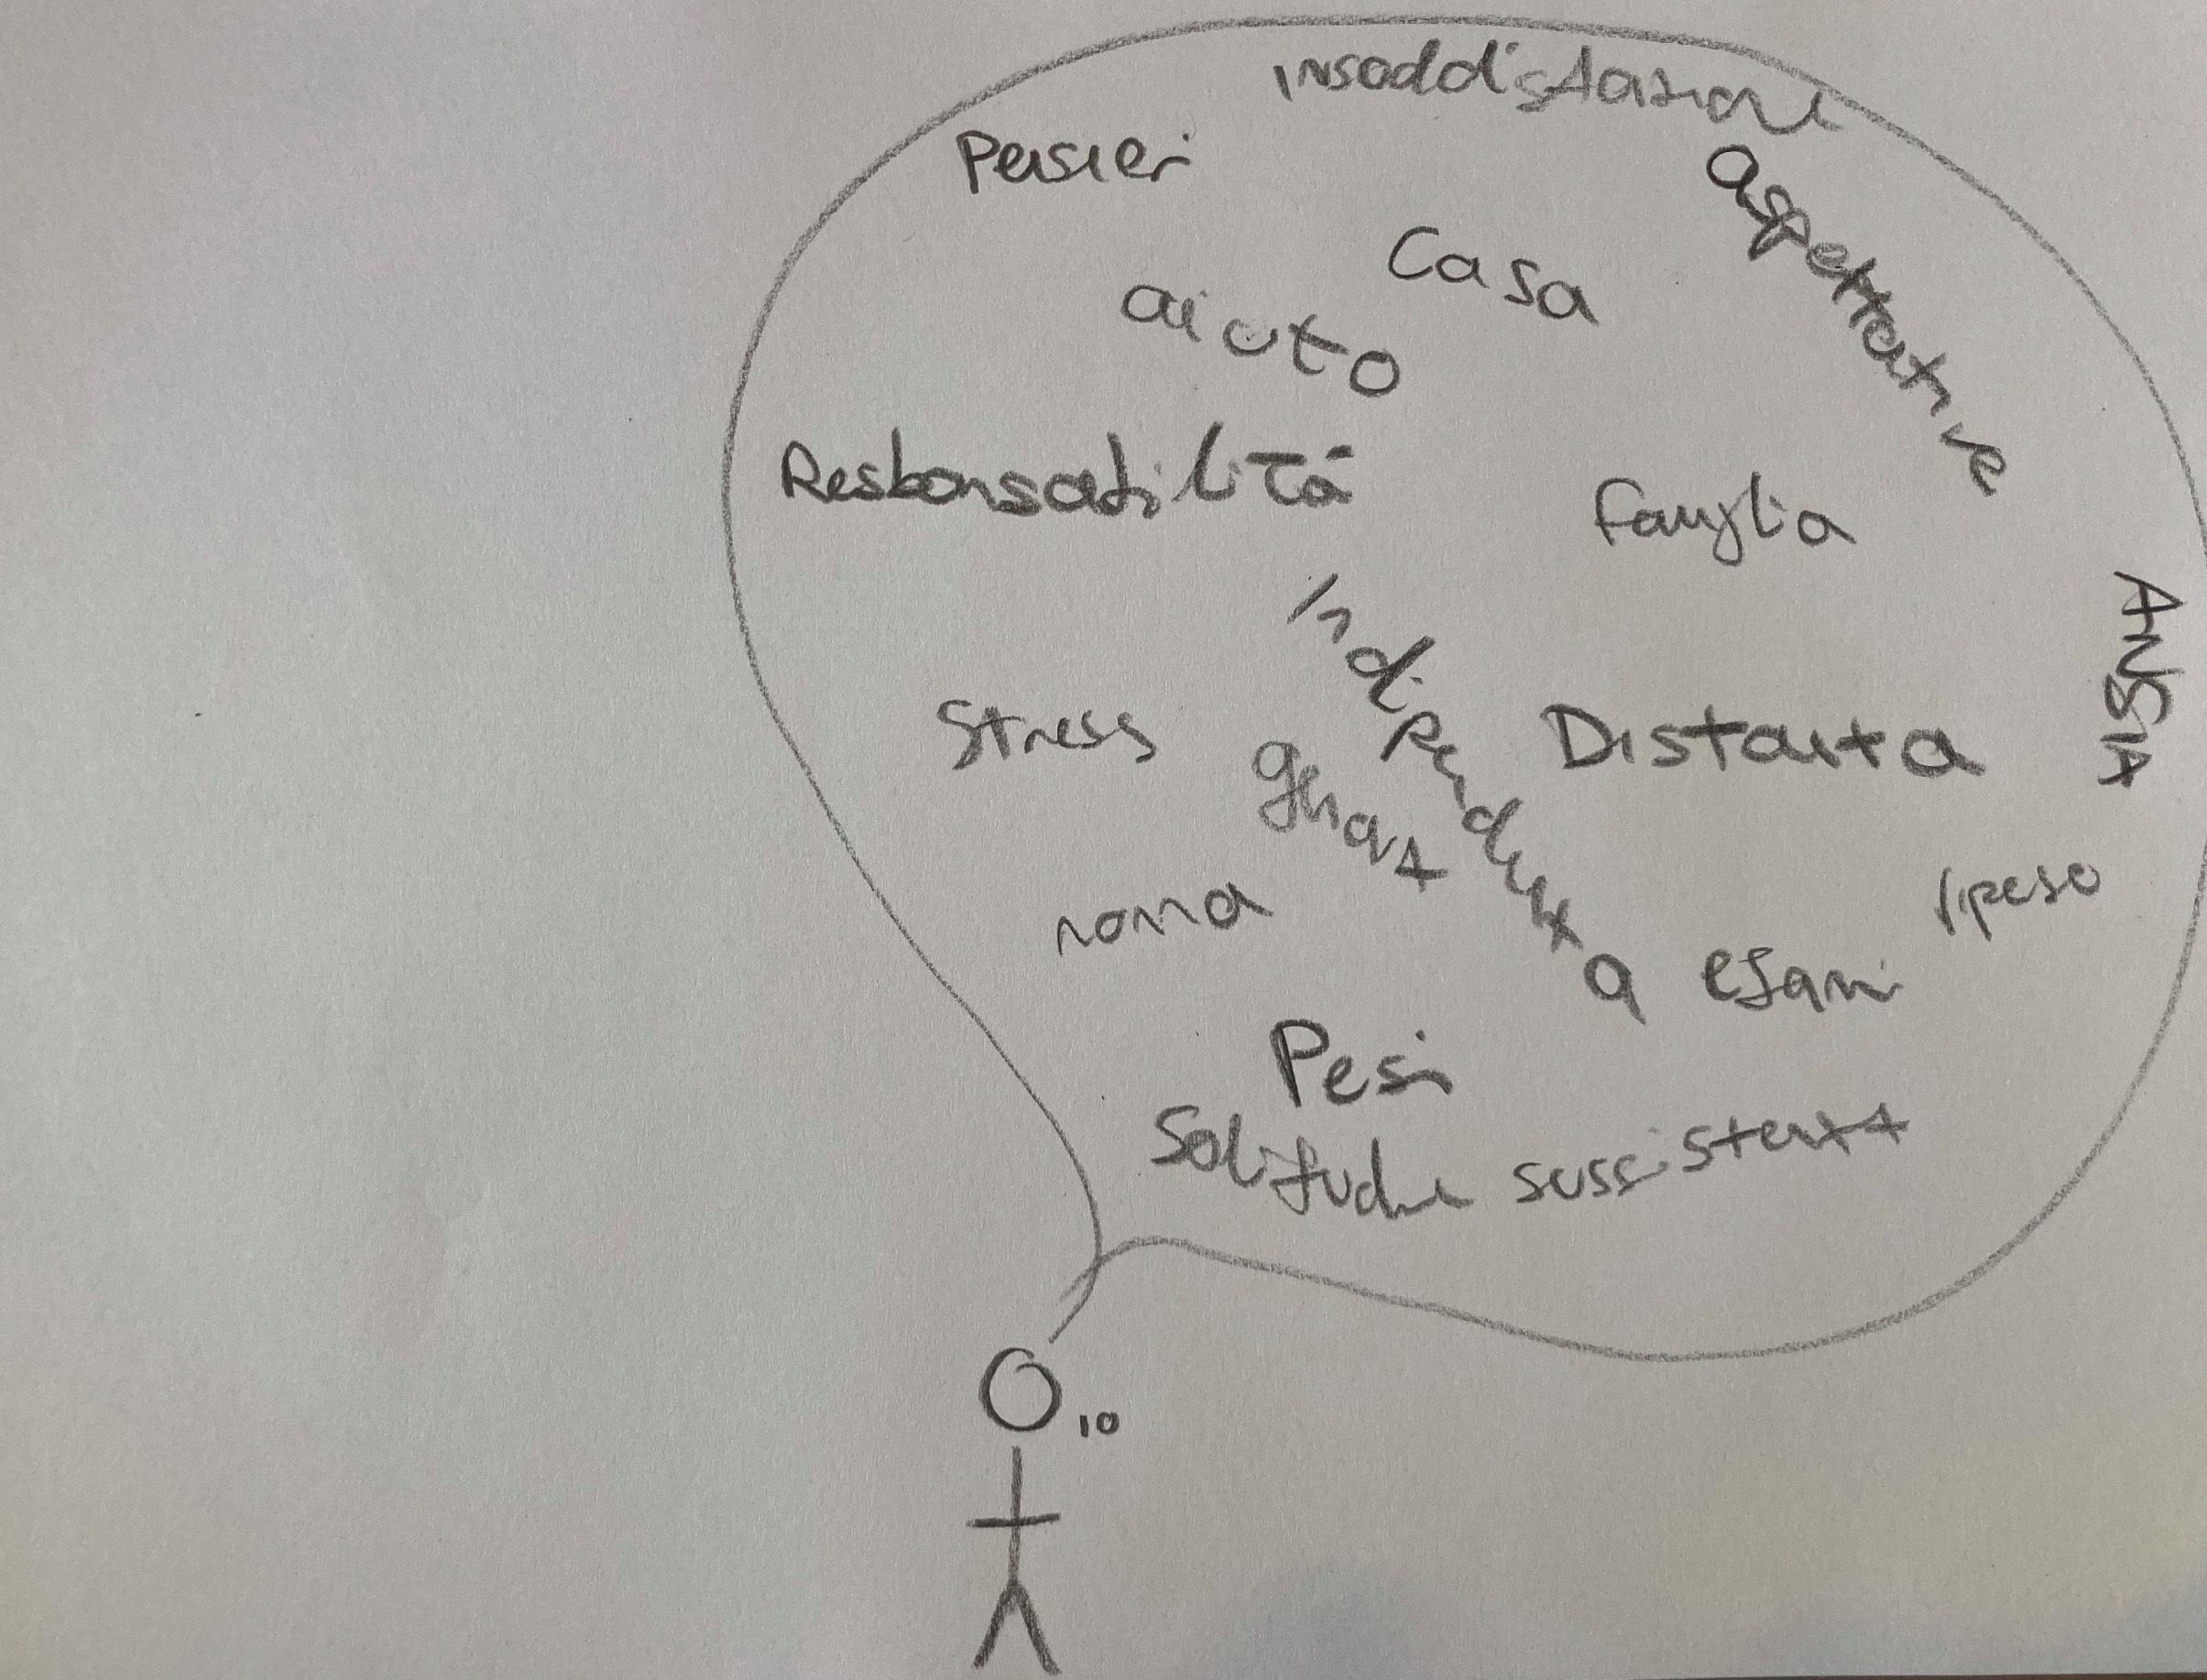 insoddisfazione
Pensieri
aspettative
Casa
aiuto
Responsabilità
famiglia
Indipendenza
ANSIA
Stress
Distanza
roma
riposo
esami
Pesi
Solitudine sussistenza
io